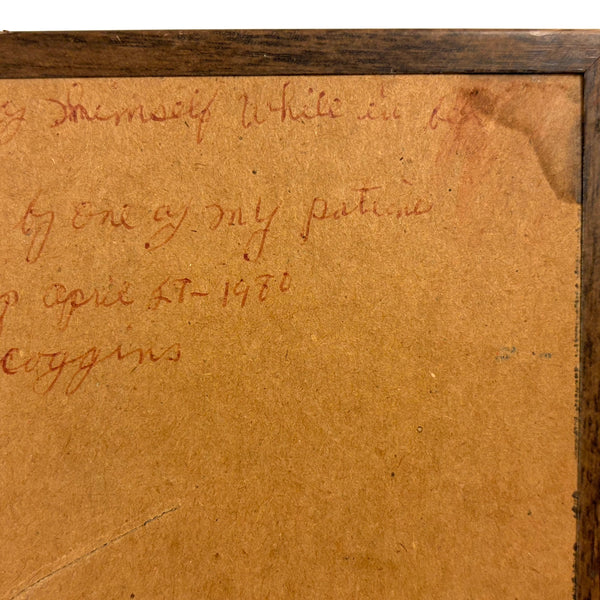 himself While in
by one of my patiens
april 27-1980
coggins